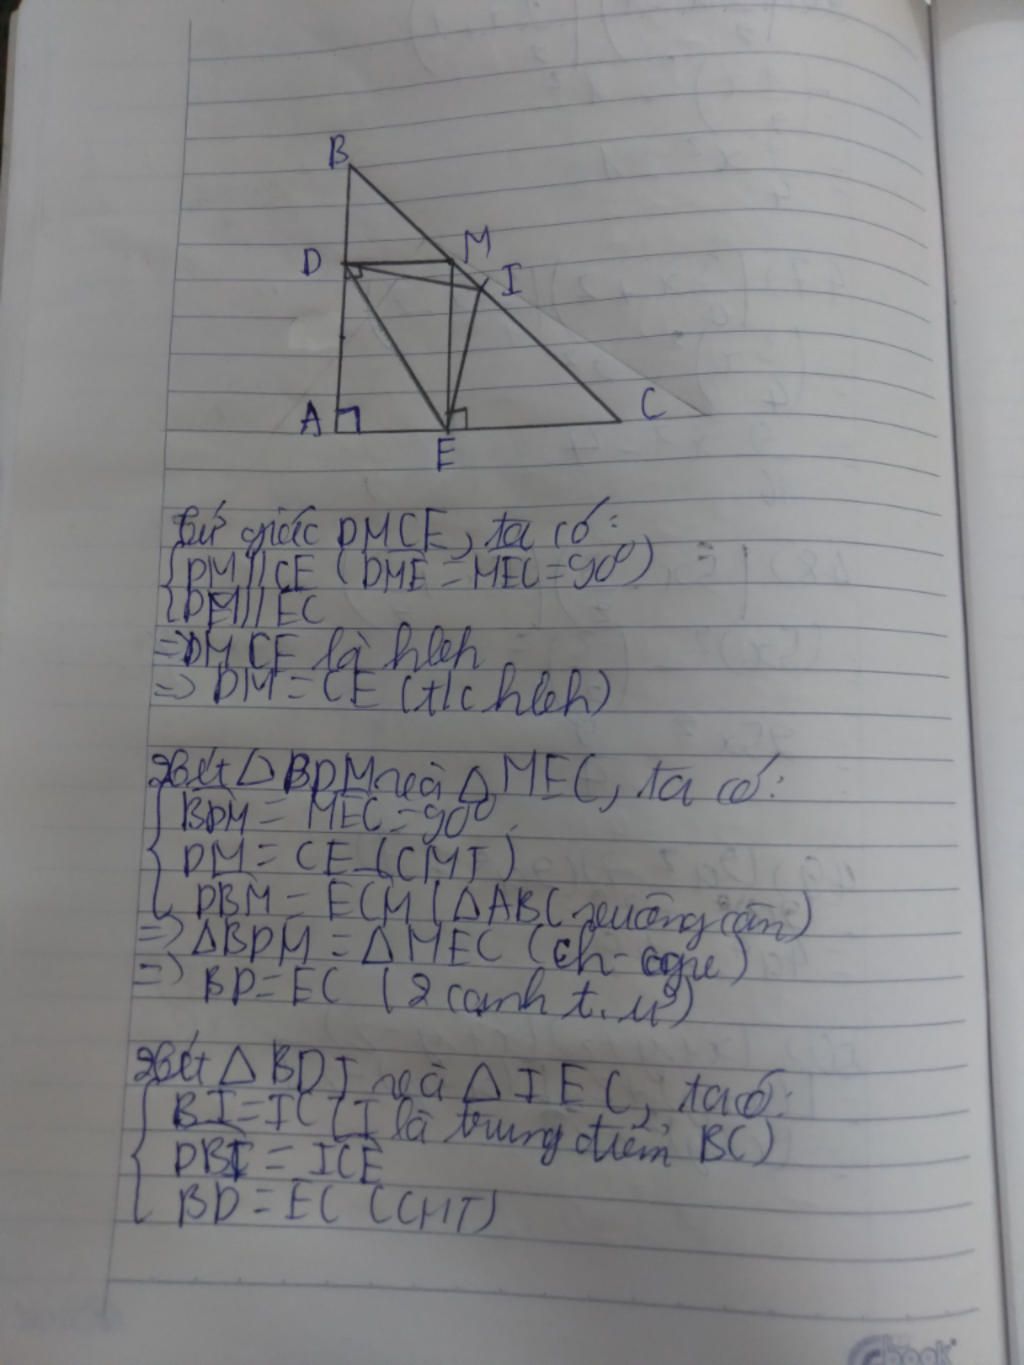 B
D
M
I
A
E
C
Tứ giác DMCE, ta có:
DM//CE (DME = MEC = 90⁰)
DM//EC
=> DMCE là hbh
=> DM = CE (t/c hbh)
Xét △ BDM và △ MEC, ta có:
BDM = MEC = 90⁰
DM = CE (CMT)
DBM = ECM (△ABC vuông cân)
=> △BDM = △MEC (ch-cgv)
=> BD = EC (2 cạnh t.ứ)
Xét △ BDI và △ IEC, ta có:
BI = IC (I là trung điểm BC)
DBI = ICE
BD = EC (CMT)
book